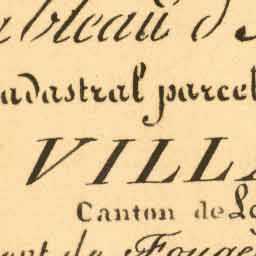 ableau d'
adastral parcel
VILLA
Canton de Lo
ent de Fougè